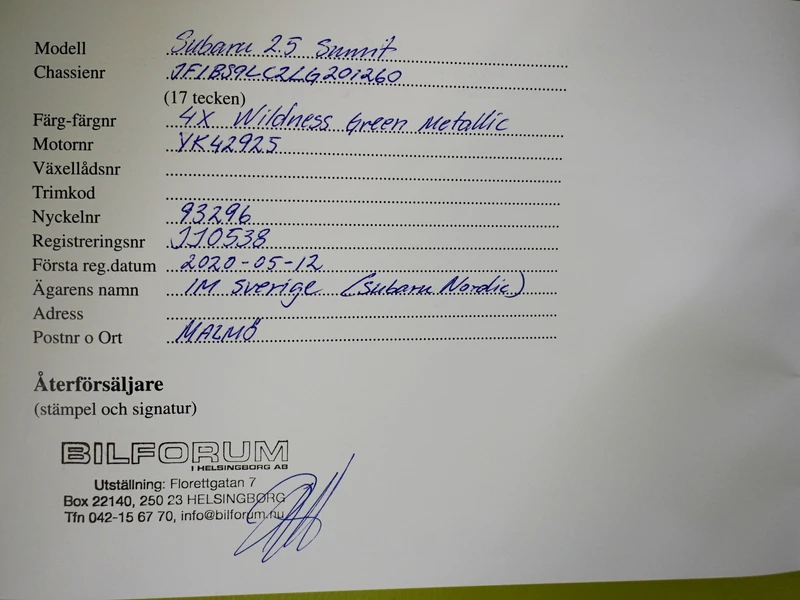 Modell Subaru 2.5 Summit
Chassienr JF1BS9LC2LG201260
(17 tecken)
Färg-färgnr 4X Wildness Green Metallic
Motornr YK42925
Växellådsnr
Trimkod
Nyckelnr 93296
Registreringsnr JJO538
Första reg.datum 2020-05-12
Ägarens namn IM Sverige (Subaru Nordic)
Adress
Postnr o Ort MALMÖ
Återförsäljare
(stämpel och signatur)
BILFORUM
I HELSINGBORG AB
Utställning: Florettgatan 7
Box 22140, 250 23 HELSINGBORG
Tfn 042-15 67 70, info@bilforum.nu